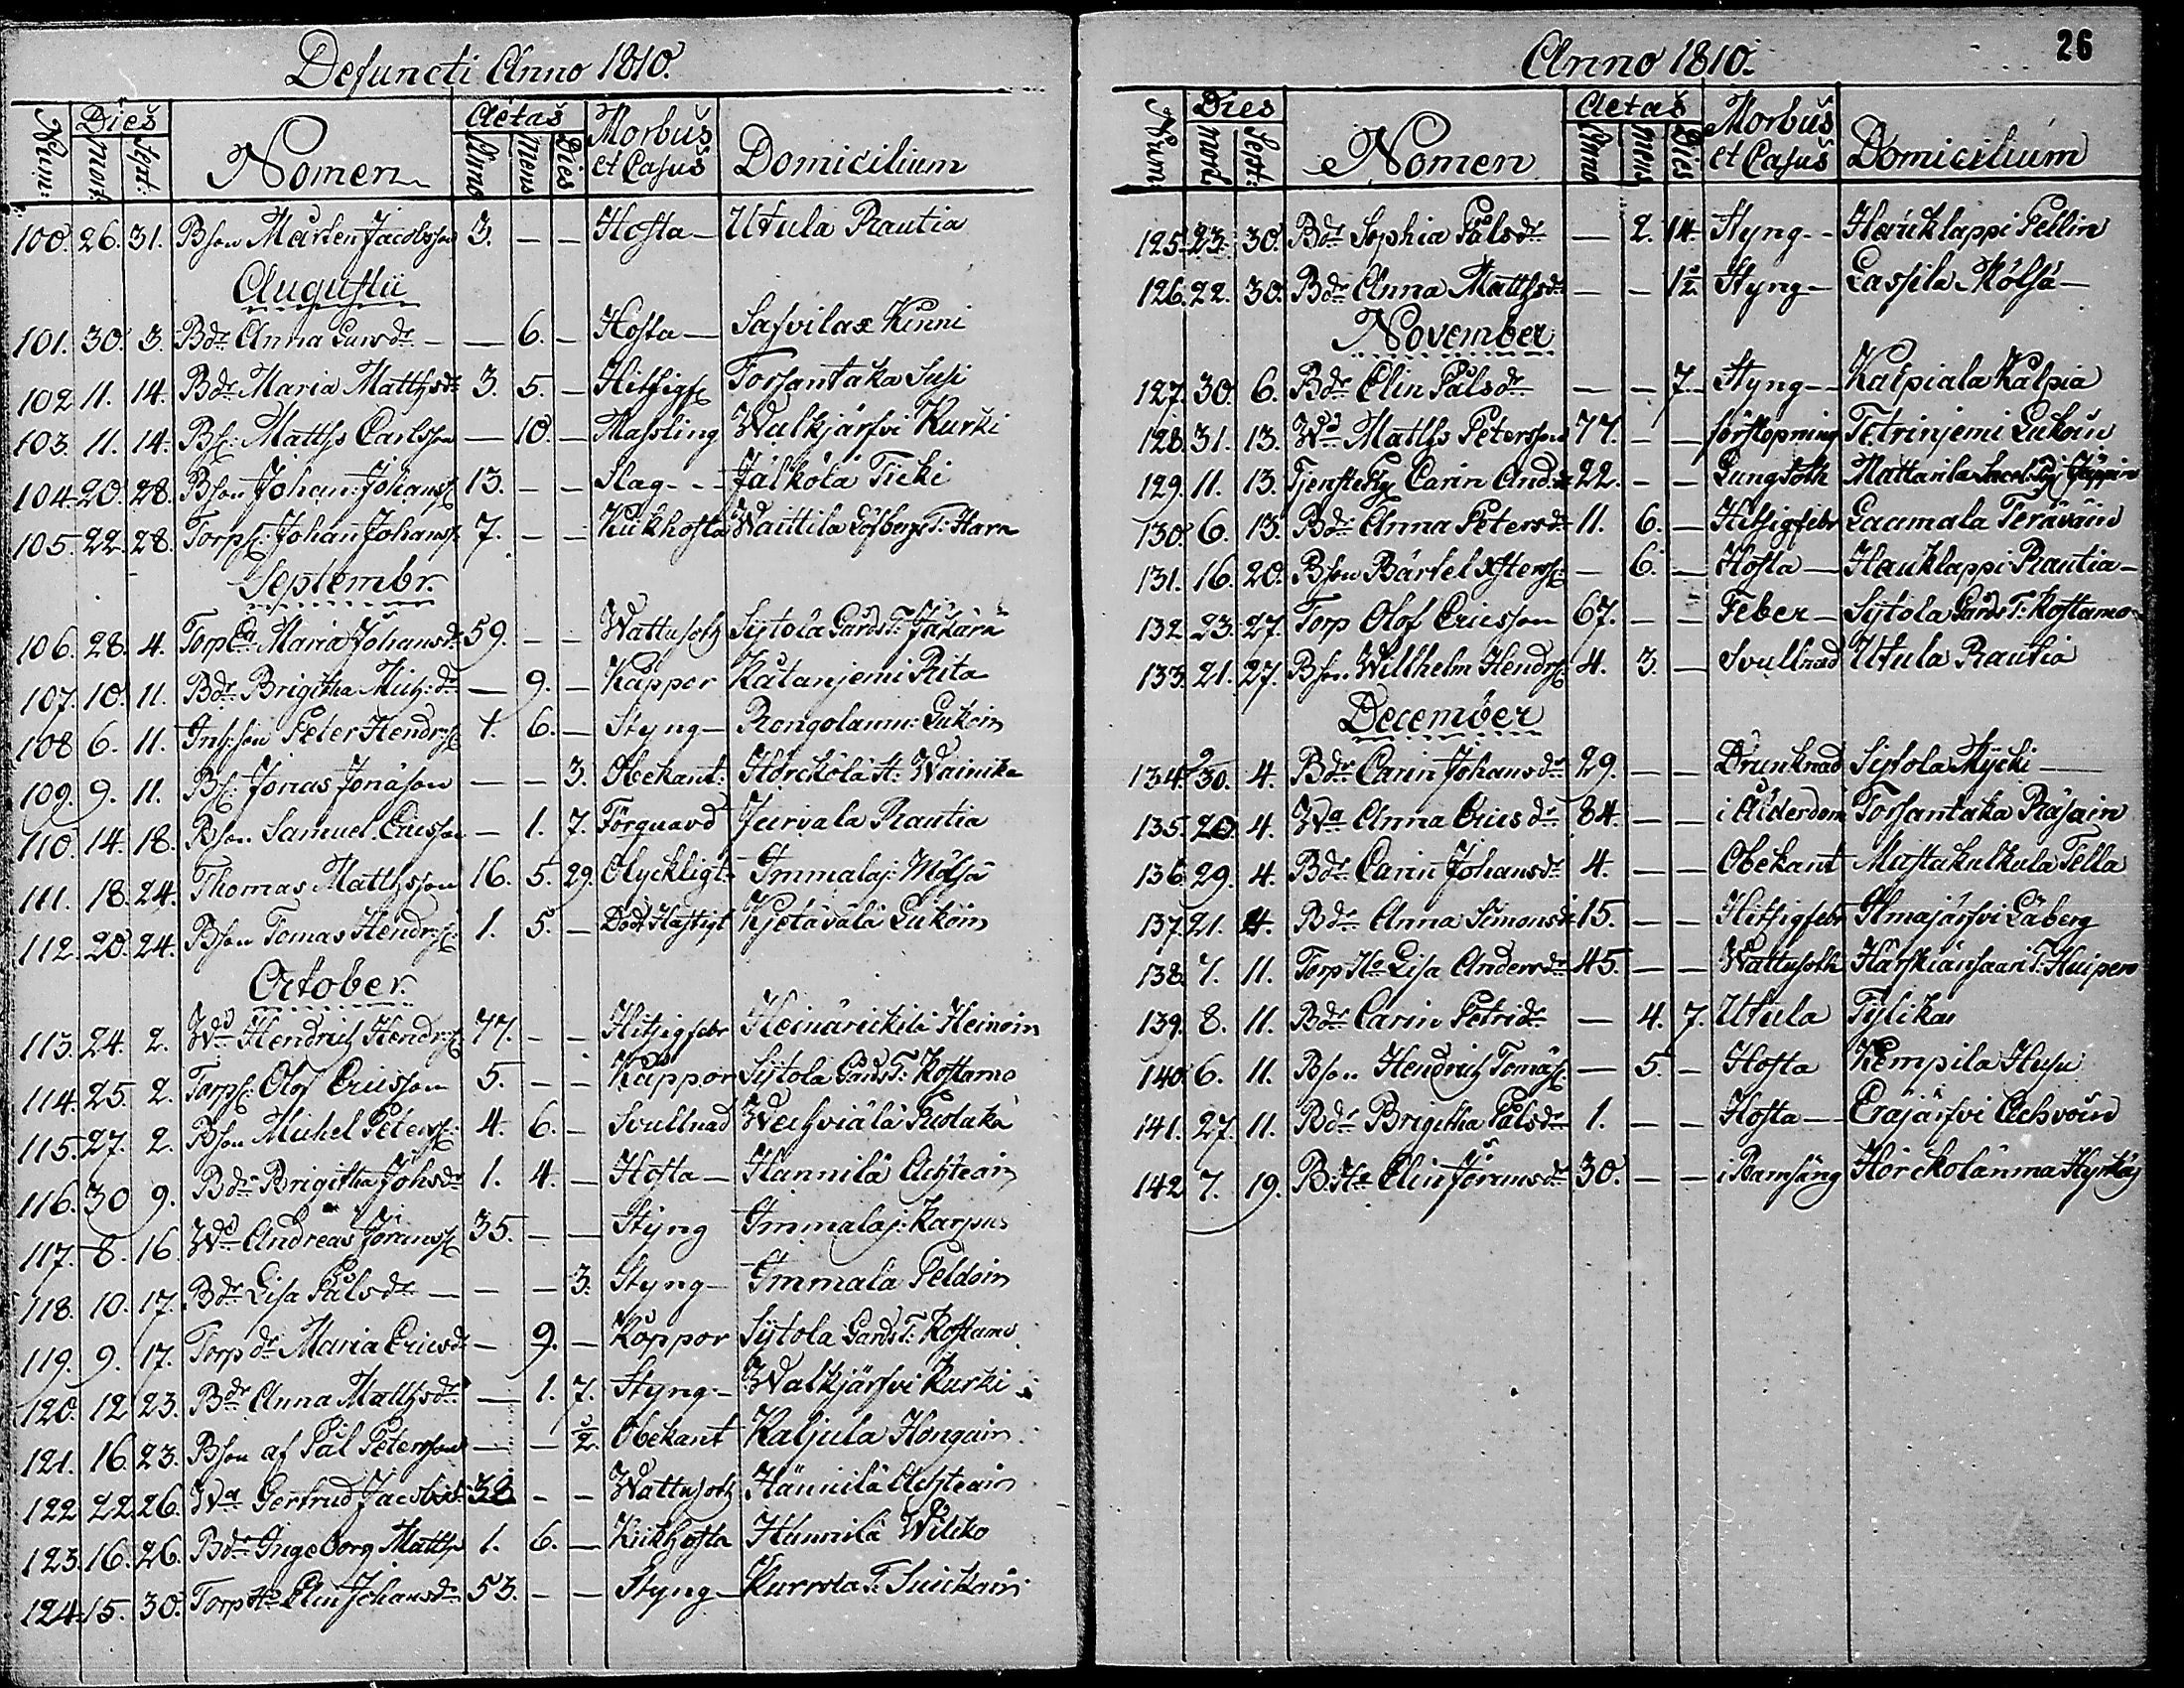 Defuncti Anno 1810.
Num: Dies Mort: Sept: Nomen Aetas Anno Mens Dies Morbus et Casus Domicilium
100. 26. 31. Bson Mårten Jacobsson 3. — — Hosta — Utula Rautia
Augustii
101. 30. 3. Bdr Anna Larsdr — — 6. — Hosta — Safvilax Kinni
102 11. 14. Bdr Maria Matthsdr 3. 5. — Hitsigf Torsantaka Susi
103. 11. 14. Bs: Matths Carlsson — 10. — Massling Walkjärfvi Kurki
104. 20. 28. Bson Johan Johans 13. — — Slag - - - Jälkölä Ticki
105. 22. 28. Torps: Johan Johans 7. — — Kikhosta Waittila Löfbergs T: Harn
Septembr.
106. 28. 4. Torp Ea Maria Johansdr 59. — — Wattusoth Sijtola Gårds T: Jäkärä
107. 10. 11. Bdr Brigitha Mich: dr — 9. — Kåppor Kätanjemi Rita
108 6. 11. Inh: son Peter Hendrs 1. 6. — Styng — Rongolanm: Lukoin
109. 9. 11. Bs: Jonas Jonäson — — 3. Obekant: Hörckölä H: Wainika
110. 14. 18. Bson Samuel Ericsson — 1. 7. Förquavd Jurvala Rautia
111. 18. 24. Thomas Matthsson 16. 5. 29. Olyckligt — Immalaj: Mölsä
112. 20. 24. Bson Tomas Hendrs: 1. 5. — Död Hastigt Kjetäwälä Lukoin
October.
113. 24. 2. Wd Hendrich Hendrs 77. — — Hitsigfebr Heinärickilä Heinoin
114. 25. 2. Torps: Olof Ericsson 5. — — Kåppor Sijtola Gårds T: Kostamo
115. 27. 2. Bson Michel Peters: 4. 6. — Svullnad Wechviälä
116. 30 9. Bdr Brigitha Johsdr 1. 4. — Hosta — Hannila Achteain
117. 8. 16 Wd Andreas Jörans 35. — — Styng Immalaj: Karpus
118. 10. 17. Bdr Lisa Pålsdr — — — 3. Styng — Immala Peldoin
119. 9. 17. Torpdr Maria Ericsdr — 9. — Koppor Sijtola Gårds T: Kostamo
120. 12 23. Bdr Anna Matthsdr — 1. 7. Styng — Walkjärfvi Kurki
121. 16. 23. Bson af Pål Petersson — — ½. Obekant Kaljula Hongain
122 22 26. Wa Gertrud Jacobsd: 38 — — Wattusoth Hännilä Achteain
123. 16. 26. Bdr Ingeborg Matths 1. 6. — Kikhosta Hännilä Wiliko
124. 15. 30. Torp Ha Elin Johansdr 53. — — Styng — Kurrola T: Suikain
Anno 1810.
26
Num: Dies mort Sept: Nomen Aetas Anno mens Dies Morbus et Casus Domicilium
125. 23. 30. Bdr Sophia Pålsdr — 2. 14. Styng - - Hauklappi Pellin
126. 22. 30. Bdr Anna Matthsdr — — ½ Styng — Lassila Mölsä —
November
127. 30. 6. Bdr Elin Pålsdr — — 7. Styng - - Kalpiala Kalpia
128. 31. 13. Wd Matths Petersson 77. — — förstopning Tetrinjemi Lukoin
129. 11. 13. Tjenste Pig Carin And: dr 22. — — Lungsoth Mattarila
130. 6. 13. Bdr Anna Petersdr 11. 6. — Hitsigfebr Laamala Teräväin
131. 16. 20. Bson Bärtel Xsters: — 6. — Hosta — Hauklappi Rautia —
132. 23. 27. Torp Olof Ericsson 67. — — Feber — Sijtola Gårds T: Kostamo
133. 21. 27. Bson Willhelm Hendrs 4. 3. — Svullnad Utula Rautia
December
134. 30. 4. Bdr Carin Johansdr 29. — — Drunknad Sijtola Mÿcki —
135. 20. 4. Wa Anna Ericsdr 84. — — i Ålderdom Torsantaka Räsain
136. 29. 4. Bdr Carin Johansdr 4. — — Obekant Mustakulkula Tella
137. 21. 4. Bdr Anna Simonsd: 15. — — Hitsigfebr Ilmajärfvi Låberg
138. 7. 11. Torp Ha Lisa Andersdr 45. — — Wattusoth Härskiänsaari T: Huipero
139. 8. 11. Bdr Carin Petridr — 4. 7. Utula Tÿlikas
140. 6. 11. Bson Hendrich Tomäs — 5. — Hosta Kempila Husu
141. 27. 11. Bdr Brigitha Pålsdr 1. — — Hosta — Eräjärfvi Achvoin
142 7. 19. B: Ha Elin Jöransdr 30. — — i Barnsäng Hörckolänma